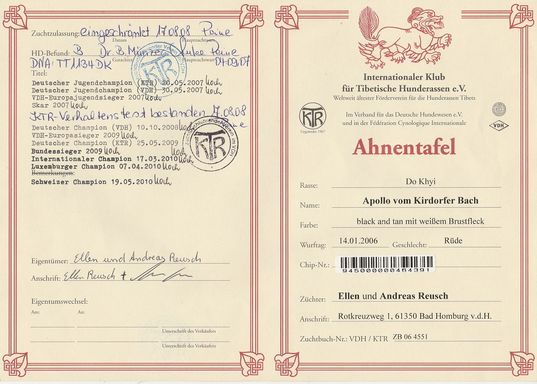 Zuchtzulassung: eingeschränkt 17.08.08
Datum Hauptzuchtwart
HD-Befund: B Dr. B.
Gutachter Hauptzuchtwart
DNA: TT1134DK 04.09.07
Titel:
Deutscher Jugendchampion (KTR) 20.05.2007
Deutscher Jugendchampion (VDH) 30.05.2007
VDH-Europajugendsieger 2007
Skar 2007
KTR-Verhaltenstest bestanden 17.08.08
Deutscher Champion (VDH) 10.10.2008
VDH-Europasieger 2009
Deutscher Champion (KTR) 25.05.2009
Bundessieger 2009
Internationaler Champion 17.03.2010
Luxemburger Champion 07.04.2010
Bemerkungen:
Schweizer Champion 19.05.2010
KTR
KTR
Eigentümer: Ellen und Andreas Reusch
Anschrift: Ellen Reusch +
Eigentumswechsel:
An: Am:
Unterschrift des Verkäufers
Unterschrift des Verkäufers
Internationaler Klub
für Tibetische Hunderassen e.V.
Weltweit ältester Förderverein für die Hunderassen Tibets
Im Verband für das Deutsche Hundewesen e.V.
und in der Fédération Cynologique Internationale
KTR
Gegründet 1967
VDH
Ahnentafel
Rasse: Do Khyi
Name: Apollo vom Kirdorfer Bach
Farbe: black and tan mit weißem Brustfleck
Wurftag: 14.01.2006 Geschlecht: Rüde
Chip-Nr.: 945000000464391
Züchter: Ellen und Andreas Reusch
Anschrift: Rotkreuzweg 1, 61350 Bad Homburg v.d.H.
Zuchtbuch-Nr.: VDH / KTR ZB 06 4551